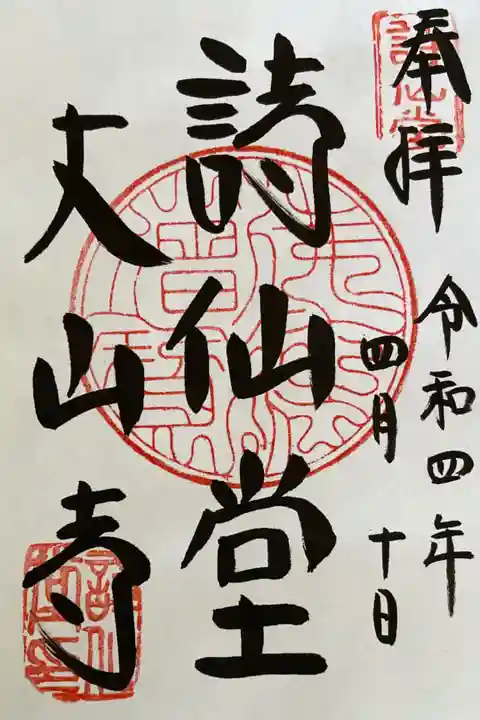 奉拝
詩仙堂
令和四年
四月十日
詩仙堂
丈山寺